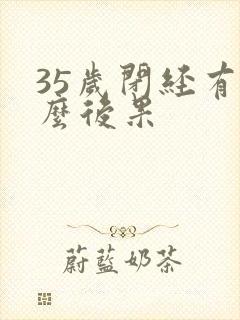 35歲閉經有
麼後果
蔚藍奶茶